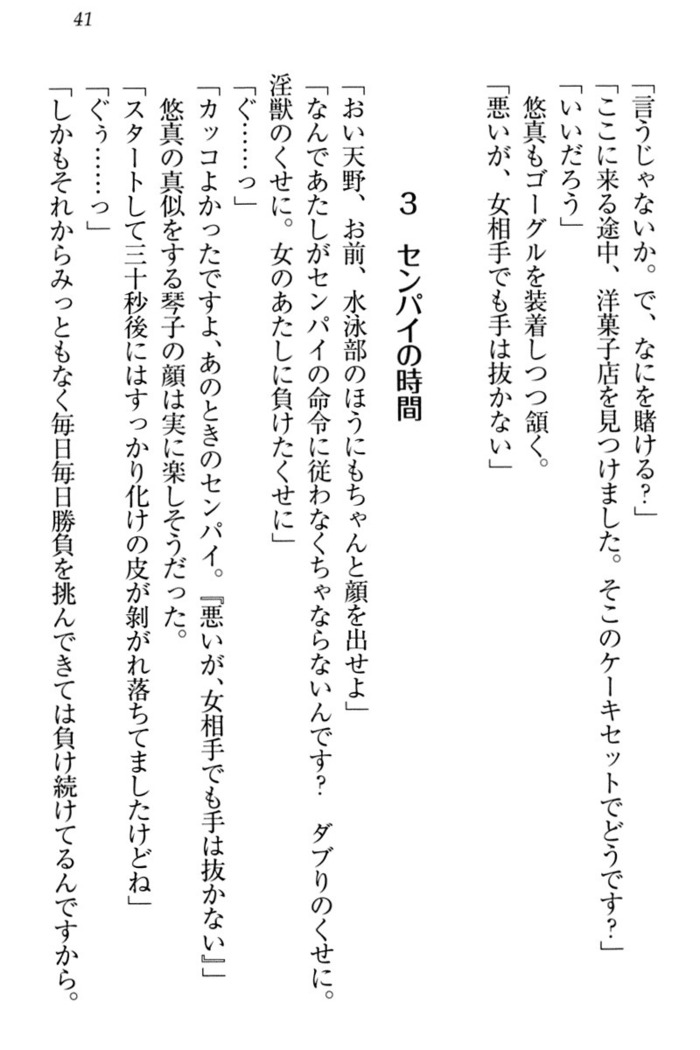 41
「言うじゃないか。で、なにを賭ける?」
「ここに来る途中、洋菓子店を見つけました。そこのケーキセットでどうです?」
「いいだろう」
悠真もゴーグルを装着しつつ頷く。
「悪いが、女相手でも手は抜かない」
3 センパイの時間
「おい天野、お前、水泳部のほうにもちゃんと顔を出せよ」
「なんであたしがセンパイの命令に従わなくちゃならないんです? ダブりのくせに。
淫獣のくせに。女のあたしに負けたくせに」
「ぐ……っ」
「カッコよかったですよ、あのときのセンパイ。『悪いが、女相手でも手は抜かない』」
悠真の真似をする琴子の顔は実に楽しそうだった。
「スタートして三十秒後にはすっかり化けの皮が剝がれ落ちてましたけどね」
「ぐぅ……っ」
「しかもそれからみっともなく毎日毎日勝負を挑んできては負け続けてるんですから。